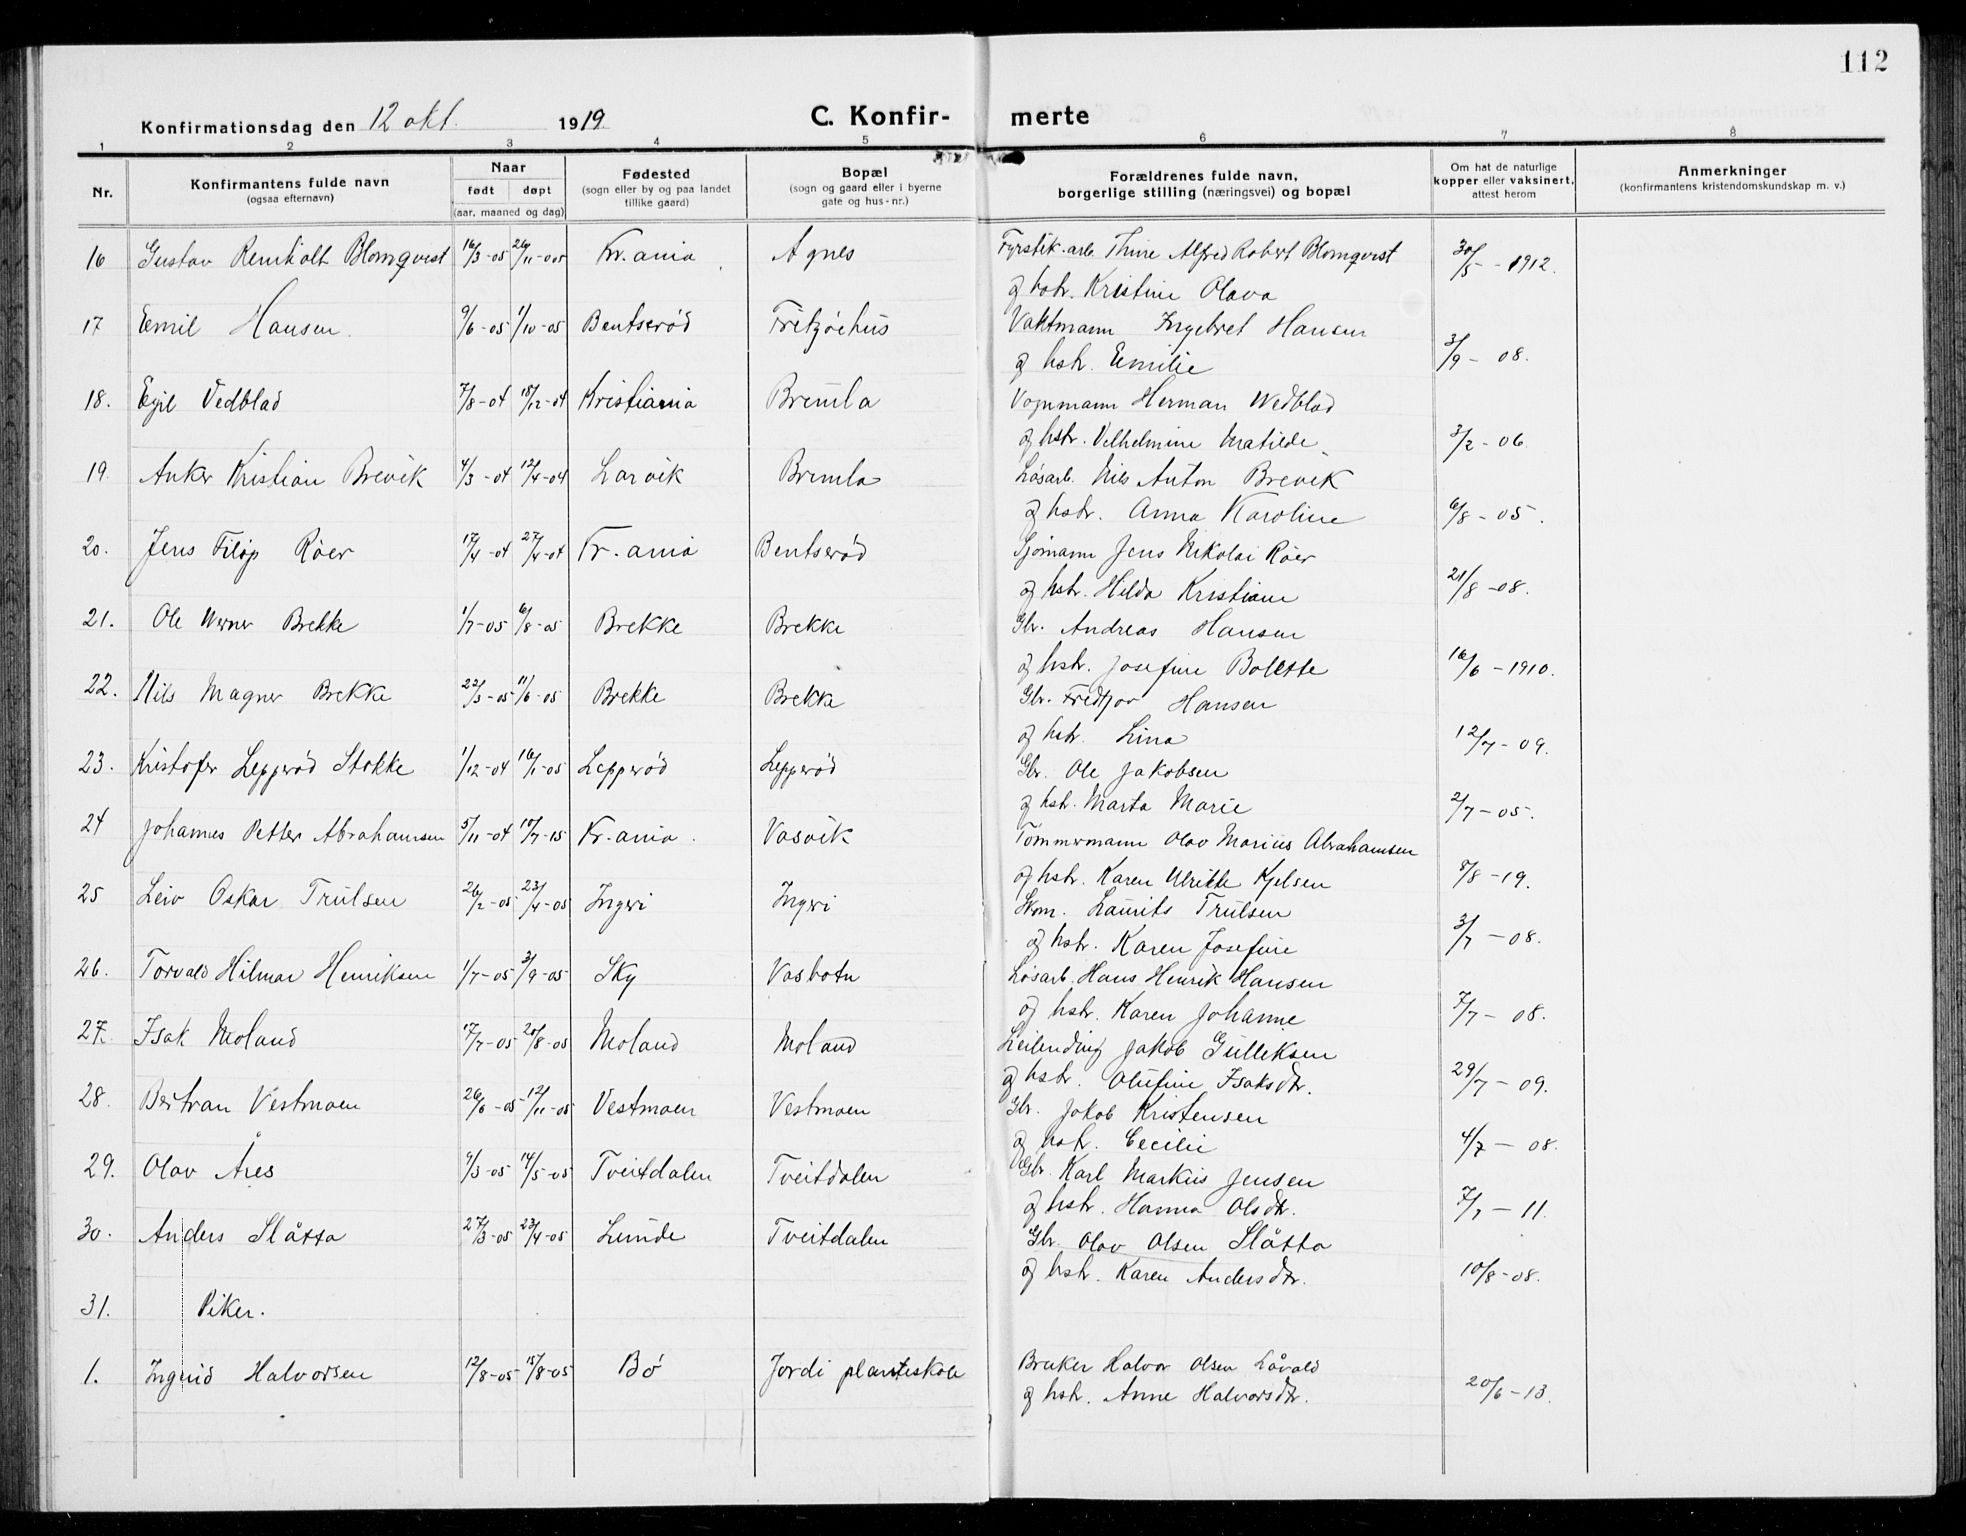 112
Konfirmationsdag den 12 okt. 1919. C. Konfir- merte
1 2 3 4 5 6 7 8
Nr. Konfirmantens fulde navn (ogsaa efternavn) Naar født døpt (aar, maaned og dag) Fødested (sogn eller by og paa landet tillike gaard) Bopæl (sogn og gaard eller i byerne gate og hus-nr.) Forældrenes fulde navn, borgerlige stilling (næringsvei) og bopæl Om hat de naturlige kopper eller vaksinert, attest herom Anmerkninger (konfirmantens kristendomskundskap m. v.)
16 Gustav Reinholt Blomqvist 16/3-05 26/11-005 Kr.ania Agnes Fyrstik.arb. Thure Alfred Robert Blomqvist 30/5-1912.
og hstr. Kristine Olava
17 Emil Hansen. 9/6-05 1/10-05 Bentserød Fritzøehus Vaktmann Ingebret Hansen
og hstr. Emilie 3/9-08.
18. Egil Vedblad 7/8-04 18/12-04 Kristiania Bremla Vognmann Herman Wedblad
og hstr. Vilhelmine Matilde 3/2-06.
19 Anker Kristian Brevik 4/3-04 12/4-04 Larvik Bremla Løsarb. Nils Anton Brevik
og hstr. Anna Karoline 6/8-05.
20. Jens Filip Røer 17/4-04 27/4-04 Kr.ania Bentserød Sjømann Jens Nikolai Røer
og hstr. Hilda Kristiane 21/8-08.
21. Ole Werner Brekke 1/7-05 6/8-05 Brekke Brekke Gbr. Andreas Hansen
og hstr. Josefine Bolette 16/6-1910.
22. Nils Magner Brekke 22/3-05 11/6-05 Brekke Brekke Gbr. Fredtjov Hansen
og hstr. Lina 12/7-09.
23. Kristofer Lepperød Stokke 1/12-04 16/1-05 Lepperød Lepperød Gbr. Ole Jakobsen
og hstr. Marta Marie 2/7-05.
24 Johannes Petter Abrahamsen 5/11-04 10/7-15 Kr.ania. Vasvik Tømmermann Olav Marius Abrahamsen
og hstr. Karen Ulrikke Kjelsen 8/8-19.
25 Leiv Oskar Trulsen 26/2-05 23/4-05 Ingvi Ingvi Skom. Laurits Trulsen
og hstr. Karen Josefine 3/7-08.
26. Torvald Hilmar Henriksen 1/7-05 3/9-05 Sky Vasbotn Løsarb. Hans Henrik Hansen
og hstr. Karen Johanne 7/7-08.
27. Isak Moland 17/7-05 20/8-05 Moland Moland Leilending Jakob Gulleksen
og hstr. Olufine Isaksdtr. 29/7-09.
28. Bertran Vestmoen 26/6-05 12/11-05 Vestmoen Vestmoen Gbr. Jakob Kristensen
og hstr. Cecilie 4/7-08.
29. Olav Åres 9/3-05 14/5-05 Tveitdalen Tveitdalen Gbr. Karl Markus Jensen
og hstr. Hanna Olsdtr. 7/7-11.
30. Anders Slåtta 27/3-05 23/4-05 Lunde Tveitdalen Gbr. Olav Olsen Slåtta
og hstr. Karen Andersdtr. 10/8-08.
31. Piker.
1. Ingrid Halvorsen 12/8-05 15/8-05 Bø Jordi planteskole Bruker Halvor Olsen Låvald
og hstr. Anne Halvorsdtr. 20/6-13.